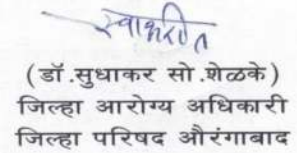 स्वाक्षरीत
(डॉ.सुधाकर सो.शेळके)
जिल्हा आरोग्य अधिकारी
जिल्हा परिषद औरंगाबाद